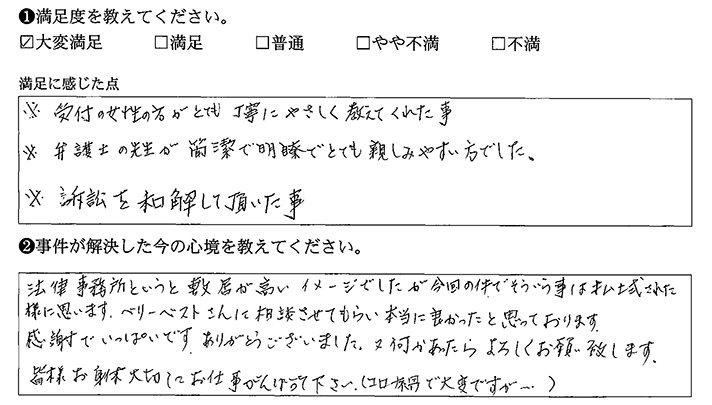 ❶満足度を教えてください。
☑大変満足 □満足 □普通 □やや不満 □不満
満足に感じた点
※ 受付の女性の方がとても丁寧にやさしく教えてくれた事
※ 弁護士の先生が簡潔で明瞭でとても親しみやすい方でした。
※ 訴訟を和解して頂いた事
❷事件が解決した今の心境を教えてください。
法律事務所というと敷居が高いイメージでしたが今回の件でそういう事は払拭された
様に思います。ベリーベストさんに相談させてもらい本当に良かったと思っております。
感謝でいっぱいです。ありがとうございました。又何かあったらよろしくお願い致します。
皆様お身体大切にお仕事がんばって下さい。(コロナ禍で大変ですが…)